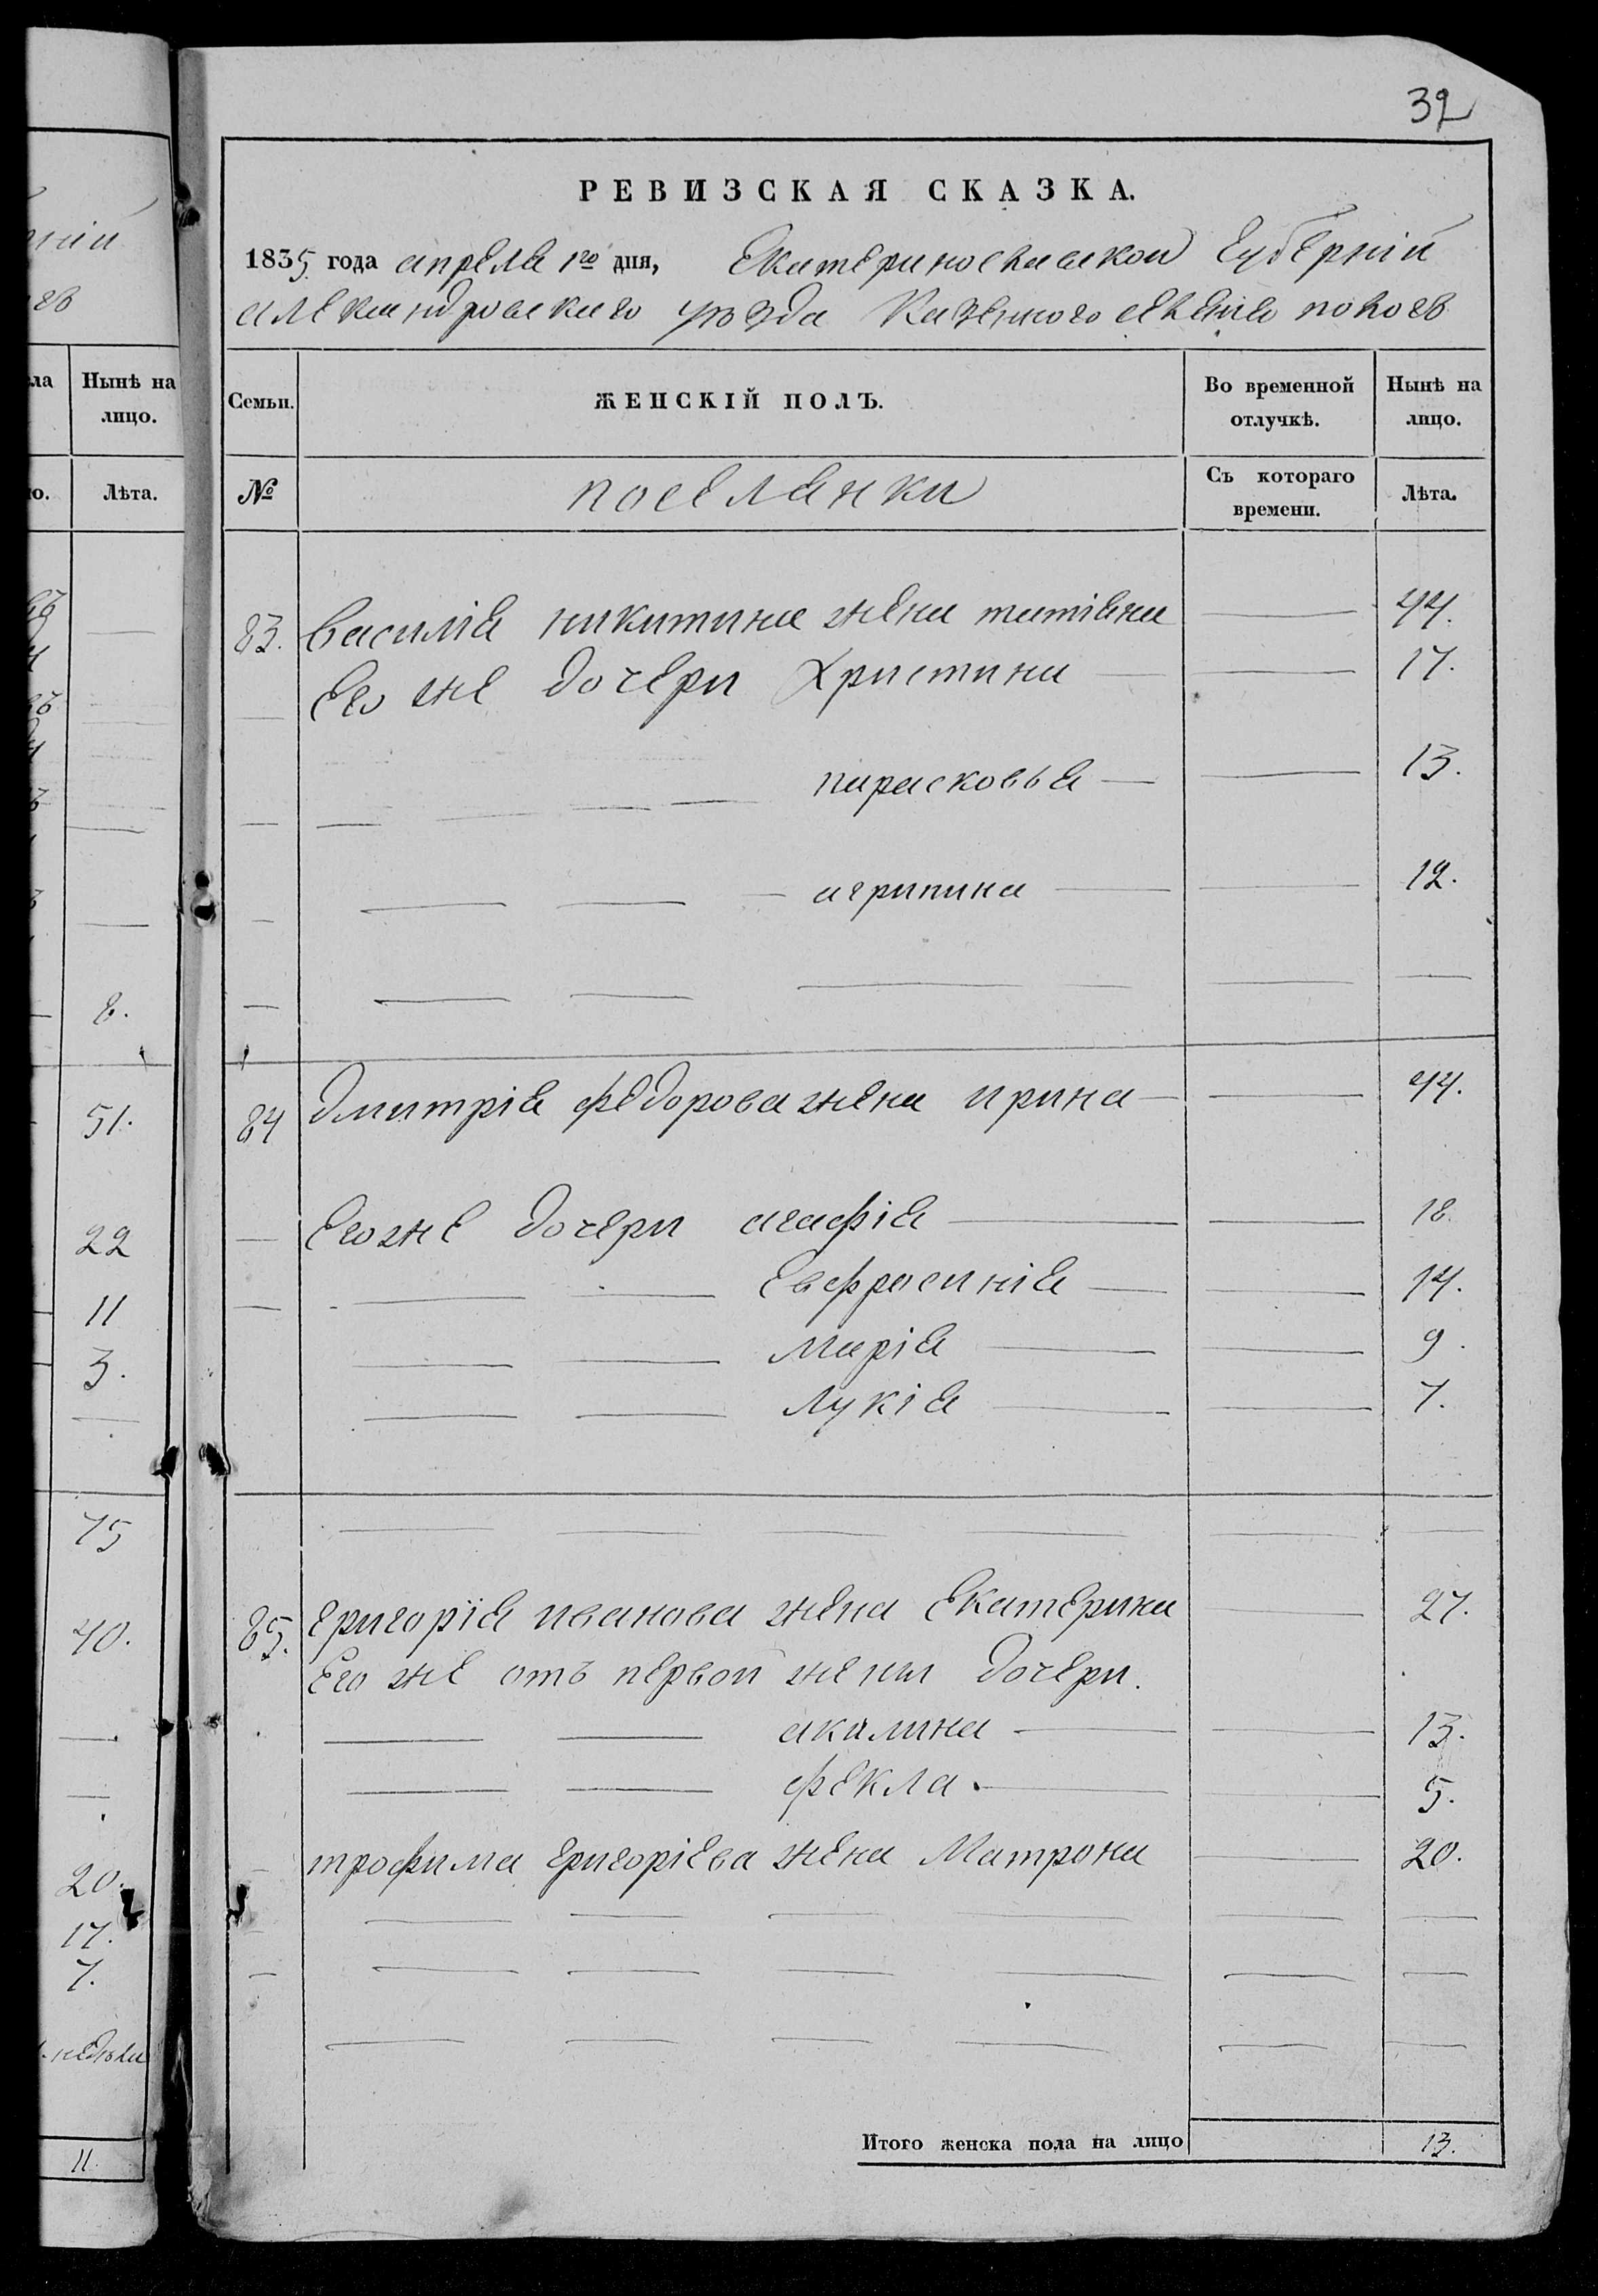 32
РЕВИЗСКАЯ СКАЗКА.
1835 года апреля 1го дня, Екатеринославской губернии
александровского уѣзда Казенного селения поков
Семьи. ЖЕНСКІЙ ПОЛЪ. Во временной отлучкѣ. Нынѣ на лицо.
№ поселянки Съ котораго времени. Лѣта.
83. василія никитина жена татіана 44.
Его же дочери Христина 17.
парасковья 13.
агрипина 12.
84 дмитрія федорова жена ирина 44.
Его же дочери агафія 18.
Евфросинія 14.
марія 9.
лукія 7.
85. григорія иванова жена Екатерина 27.
Его же отъ первой жены дочери.
акилина 13.
фекла 5.
трофима григоріева жена Матрона 20.
Итого женска пола на лицо 13.
ній
Нынѣ на лицо.
Лѣта.
8.
51.
22
11
3.
75
40.
20.
17.
7.
недѣли
11